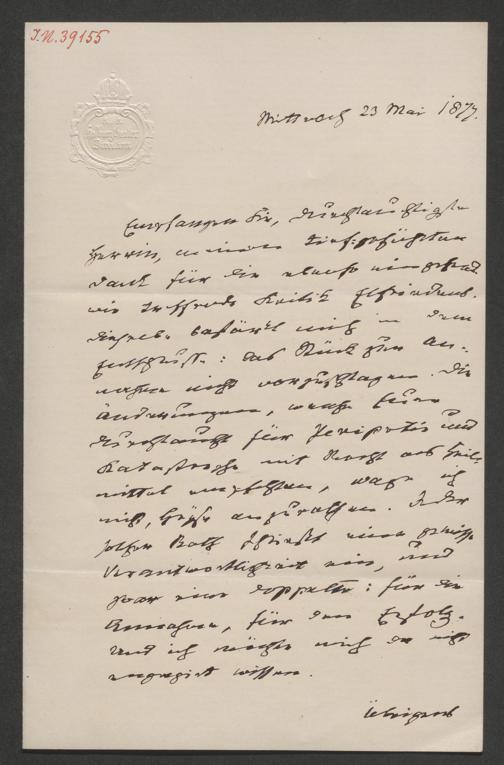 J.N. 39155
Mittwoch 23 Mai 1877.
Empfangen Sie, durchlauchtigste
Herrin, meinen tiefgefühlten
Dank für die ebenso eingehende
wie treffende Kritik
Dieselbe bestärkt mich in dem
Entschlusse: das Stück zur An-
nahme nicht vorzuschlagen. Die
Änderungen, welche Euere
Durchlaucht für Peripetie und
Katastrophe mit Recht als Heil-
mittel empfehlen, wage ich
nicht, anzurathen. Jeder
solcher Rath schließt eine gewisse
Verantwortlichkeit ein, und
zwar eine doppelte: für die
Annahme, für den Erfolg.
Und ich möchte mich da nicht
engagirt wissen.
Übrigens